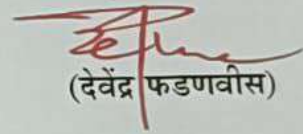 (देवेंद्र फडणवीस)